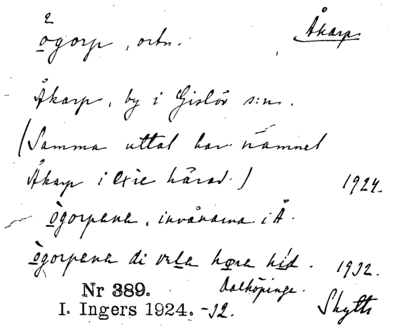 2
ogorp, ortn. Åkarp
Åkarp, by i Gislöv s:n.
(Samma uttal har nämnet
Åkarp i Oxie härad.) 1924.
ògorpana, invånarna i Å.
ògorpana di vela høra hid. 1932.
Dalköpinge.
Nr 389. Skytts
I. Ingers 1924. -32.